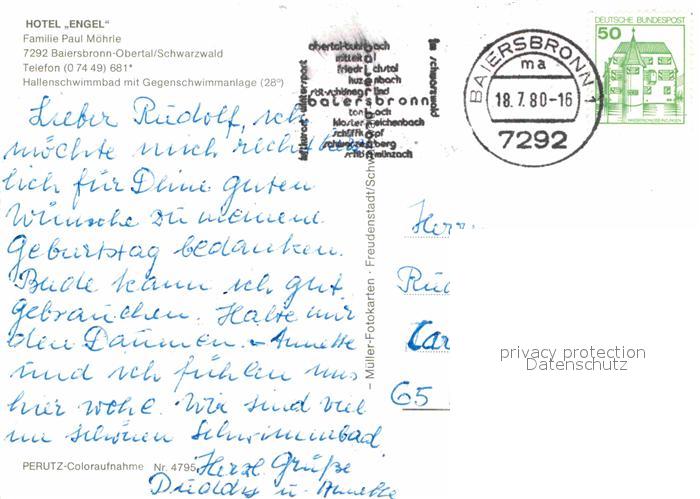 HOTEL „ENGEL"
Familie Paul Möhrle
7292 Baiersbronn-Obertal/Schwarzwald
Telefon (0 74 49) 681*
Hallenschwimmbad mit Gegenschwimmanlage (28°)
Lieber Rudolf, ich
möchte mich recht herz
lich für Deine guten
Wünsche zu meinem
Geburtstag bedanken.
kann ich gut
gebrauchen. Halte mir
den Daumen. – Annette
und ich fühlen uns
hier wohl. Wir sind viel
im schönen Schwimmbad
Herzl. Grüße
u. Annette
PERUTZ-Coloraufnahme Nr. 4795
– Müller-Fotokarten · Freudenstadt/Schw
luftkurort wintersport
im schwarzwald
obertal-buhlbach
mitteltal
friedrichstal
huzenbach
röt-schönegründ
baiersbronn
tonbach
klosterreichenbach
schliffkopf
schwarzenberg
schönmünzach
BAIERSBRONN 1
ma
18.7.80-16
7292
50
DEUTSCHE BUNDESPOST
Herr
Rud
Car
65
privacy protection
Datenschutz